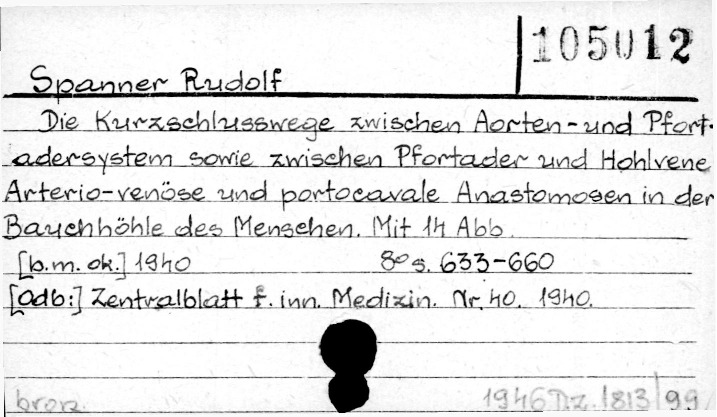 105012
Spanner Rudolf
Die Kurzschlusswege zwischen Aorten- und Pfort-
adersystem sowie zwischen Pfortader und Hohlvene
Arterio-venöse und portocavale Anastomosen in der
Bauchhöhle des Menschen. Mit 14 Abb.
[b.m. ok.] 1940 8° s. 633-660
[Odb:] Zentralblatt f. inn. Medizin. Nr. 40. 1940.
brosz. 1946 Dz. 1813/99